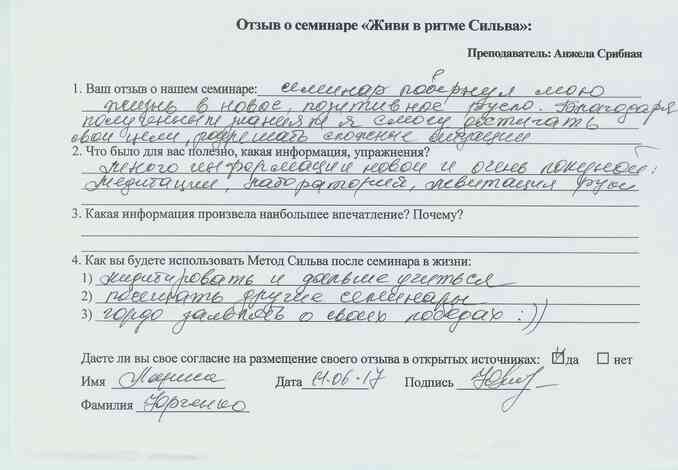 Отзыв о семинаре «Живи в ритме Сильва»:
Преподаватель: Анжела Срибная
1. Ваш отзыв о нашем семинаре: семинар повернул мою
жизнь в новое, позитивное русло. Благодаря
полученным знаниям я смогу достигать
свои цели, разрешать сложные ситуации
2. Что было для вас полезно, какая информация, упражнения?
много информации новой и очень полезной:
медитации, лаборатория, левитация руки
3. Какая информация произвела наибольшее впечатление? Почему?
4. Как вы будете использовать Метод Сильва после семинара в жизни:
1) медитировать и дальше учиться
2) посещать другие семинары
3) гордо заявлять о своих победах :))
Даете ли вы свое согласие на размещение своего отзыва в открытых источниках: да нет
Имя Лариса Дата 11.06.17 Подпись
Фамилия Юрченко